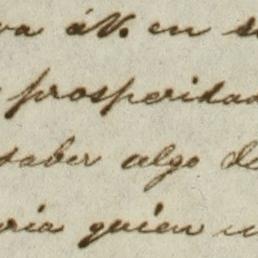 va á V. en su
prosperidad
saber algo de
ria quien